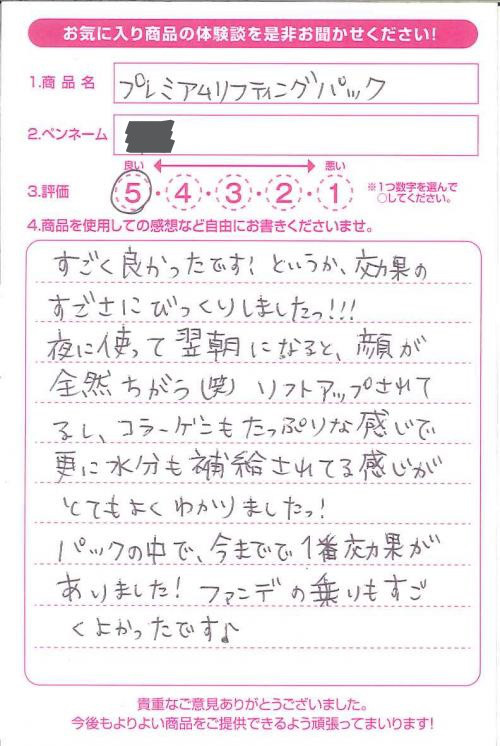 お気に入り商品の体験談を是非お聞かせください!
1.商品名 プレミアムリフティングパック
2.ペンネーム
良い 悪い
3.評価 5・4・3・2・1 ※1つ数字を選んで
○してください。
4.商品を使用しての感想など自由にお書きくださいませ。
すごく良かったです! というか、効果の
すごさにびっくりしましたっ!!!
夜に使って翌朝になると、顔が
全然ちがう(笑) リフトアップされて
るし、コラーゲンもたっぷりな感じで
更に水分も補給されてる感じが
とてもよくわかりましたっ!
パックの中で、今までで1番効果が
ありました! ファンデの乗りもすご
くよかったです♪
貴重なご意見ありがとうございました。
今後もよりよい商品をご提供できるよう頑張ってまいります!